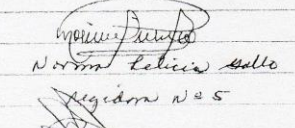 Norma Leticia Gallo
regidora Nº 5